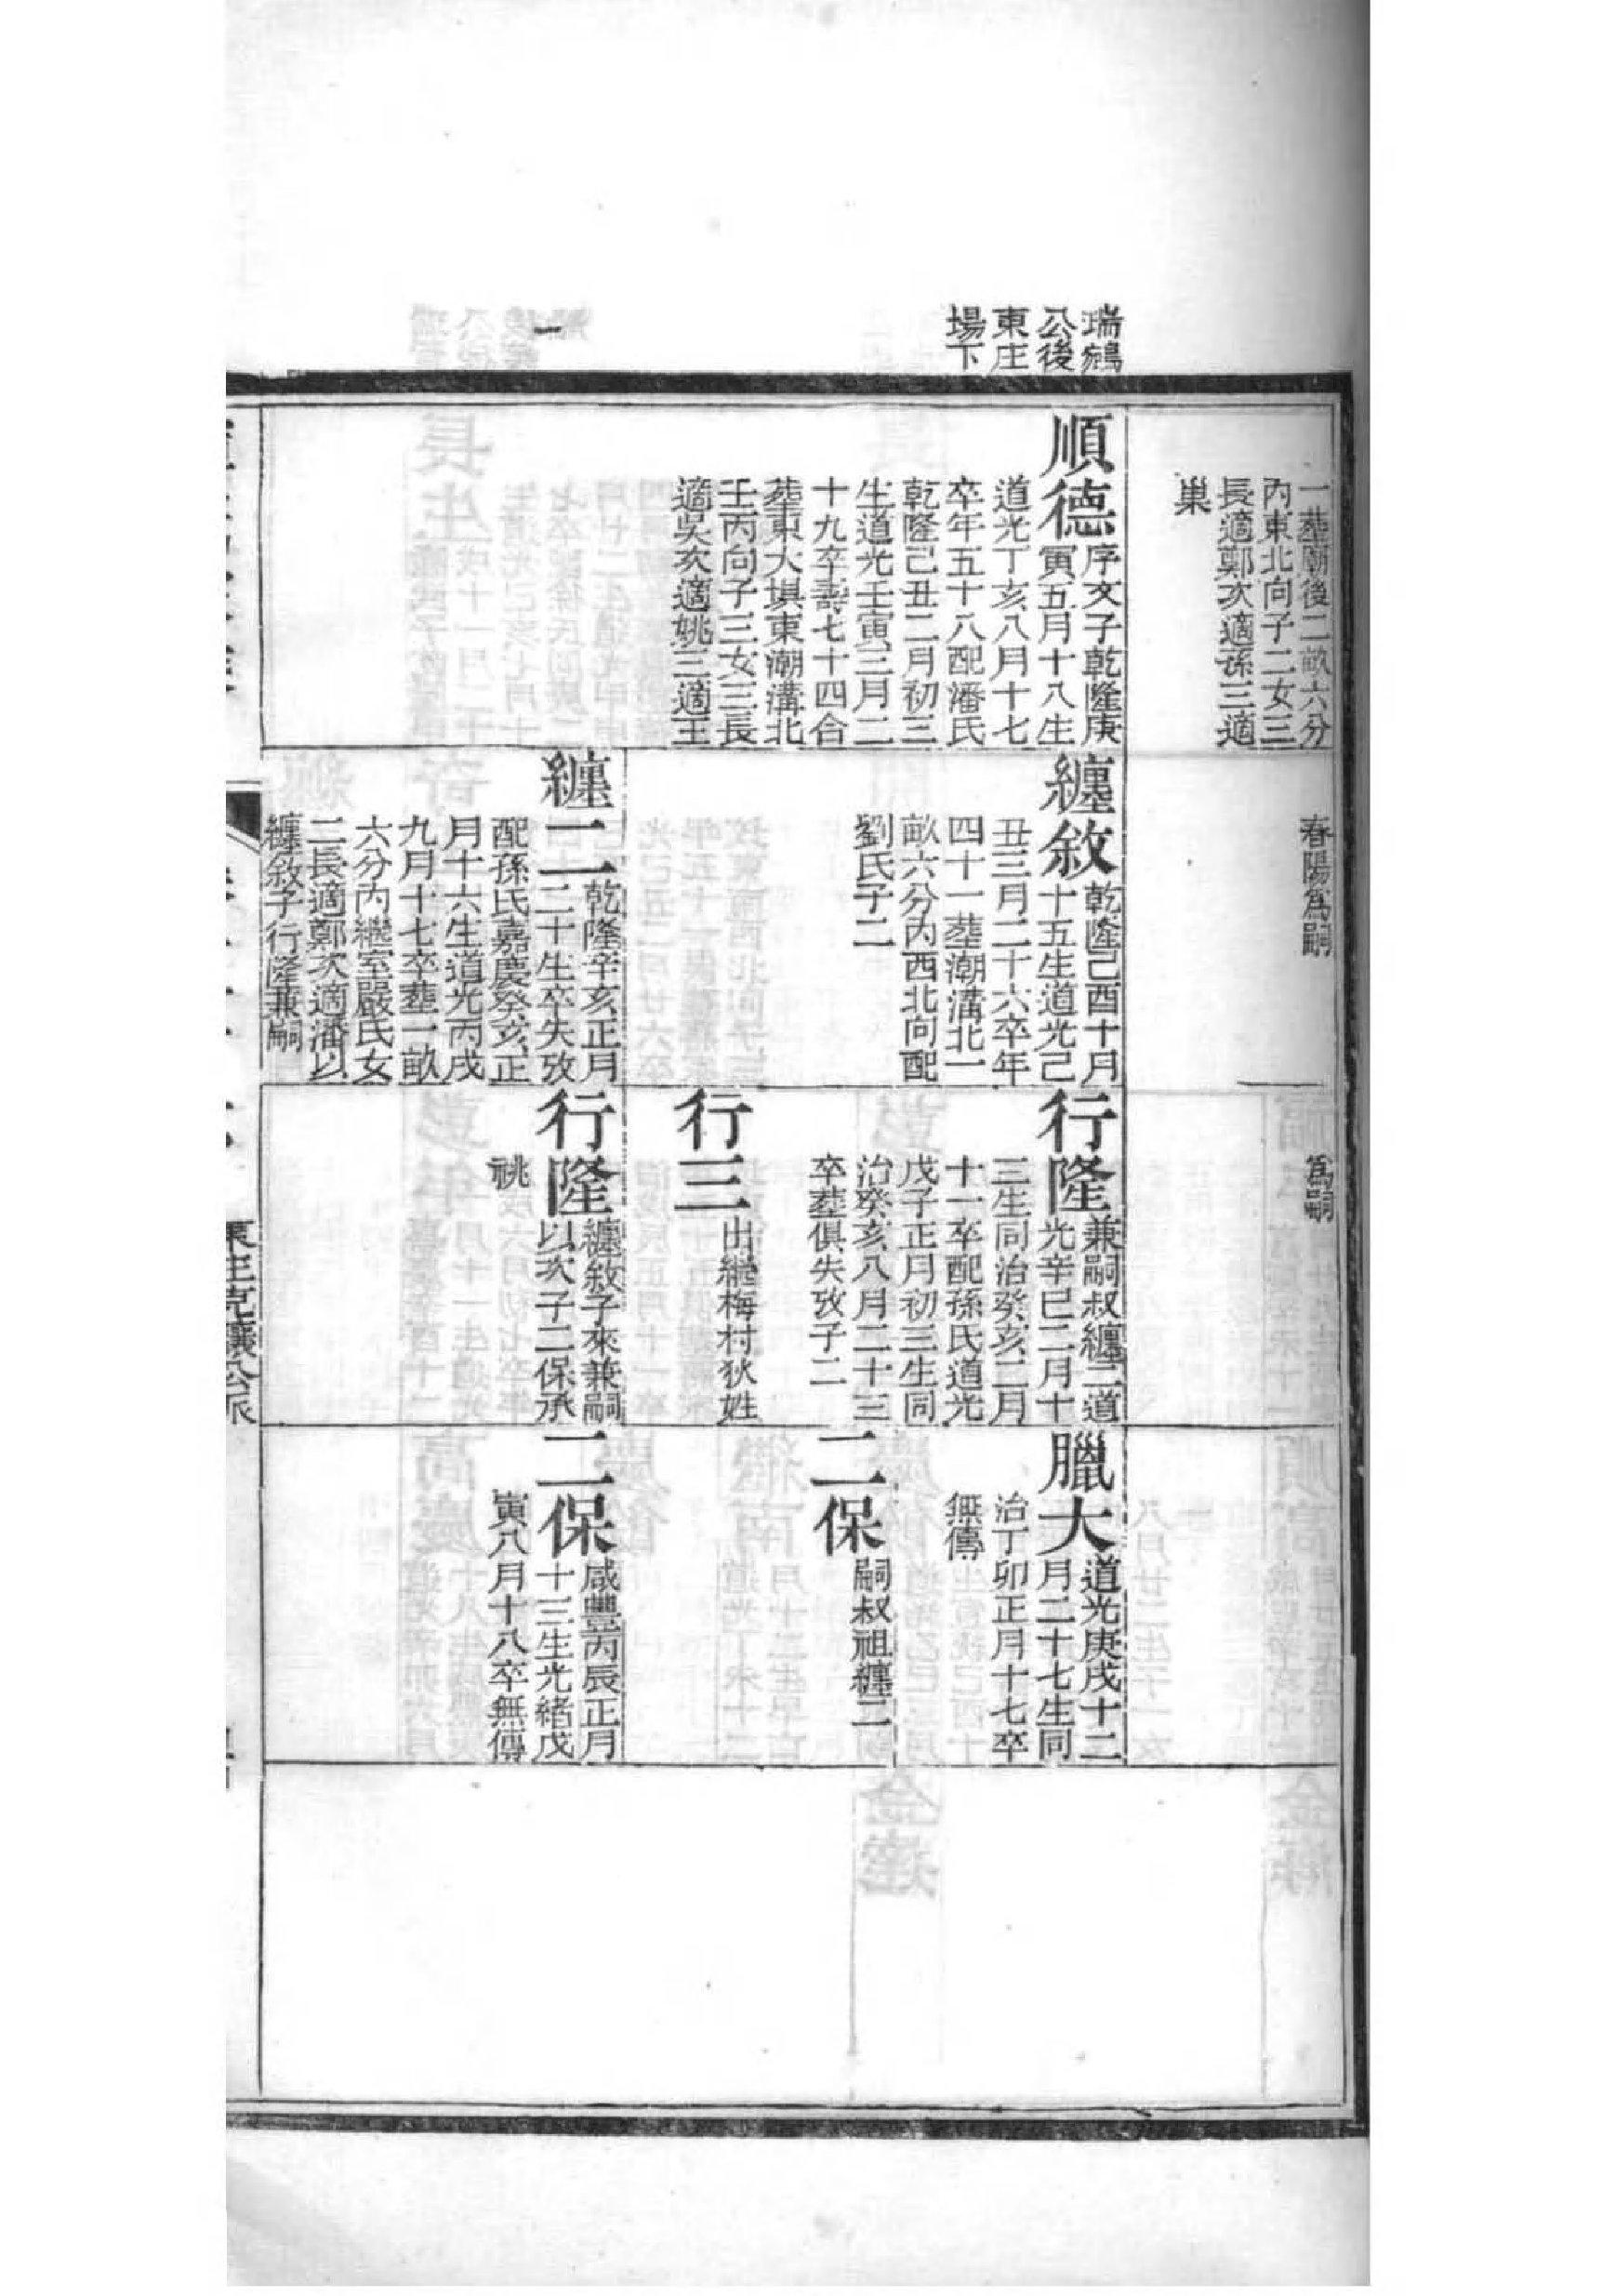 瑞鵷
公後
東庄
場下
一葬廟後二畝六分
内東北向子二女三
長適鄭次適孫三適
巢
順德
序文子乾隆庚
寅五月十八生
道光丁亥八月十七
卒年五十八配潘氏
乾隆己丑二月初三
生道光壬寅三月二
十九卒壽七十四合
葬東大塡東潮溝北
壬丙向子三女三長
適吳次適姚三適王
春陽爲嗣
纏敘
乾隆己酉十月
十五生道光己
丑三月二十六卒年
四十一葬潮溝北一
畝六分内西北向配
劉氏子二
纏二
乾隆辛亥正月
二十生卒失攷
配孫氏嘉慶癸亥正
月十六生道光丙戌
九月十七卒葬一畝
六分内繼室嚴氏女
二長適鄭次適潘以
纏敘子行隆兼嗣
爲嗣
行隆
兼嗣叔纏二道
光辛巳二月十
三生同治癸亥二月
十一卒配孫氏道光
戊子正月初三生同
治癸亥八月二十三
卒葬俱失攷子二
行三
出繼梅村狄姓
行隆
纏敘子來兼嗣
以次子二保承
祧
臘大
道光庚戌十二
月二十七生同
治丁卯正月十七卒
無傳
二保
嗣叔祖纏二
二保
咸豐丙辰正月
十三生光緒戊
寅八月十八卒無傳